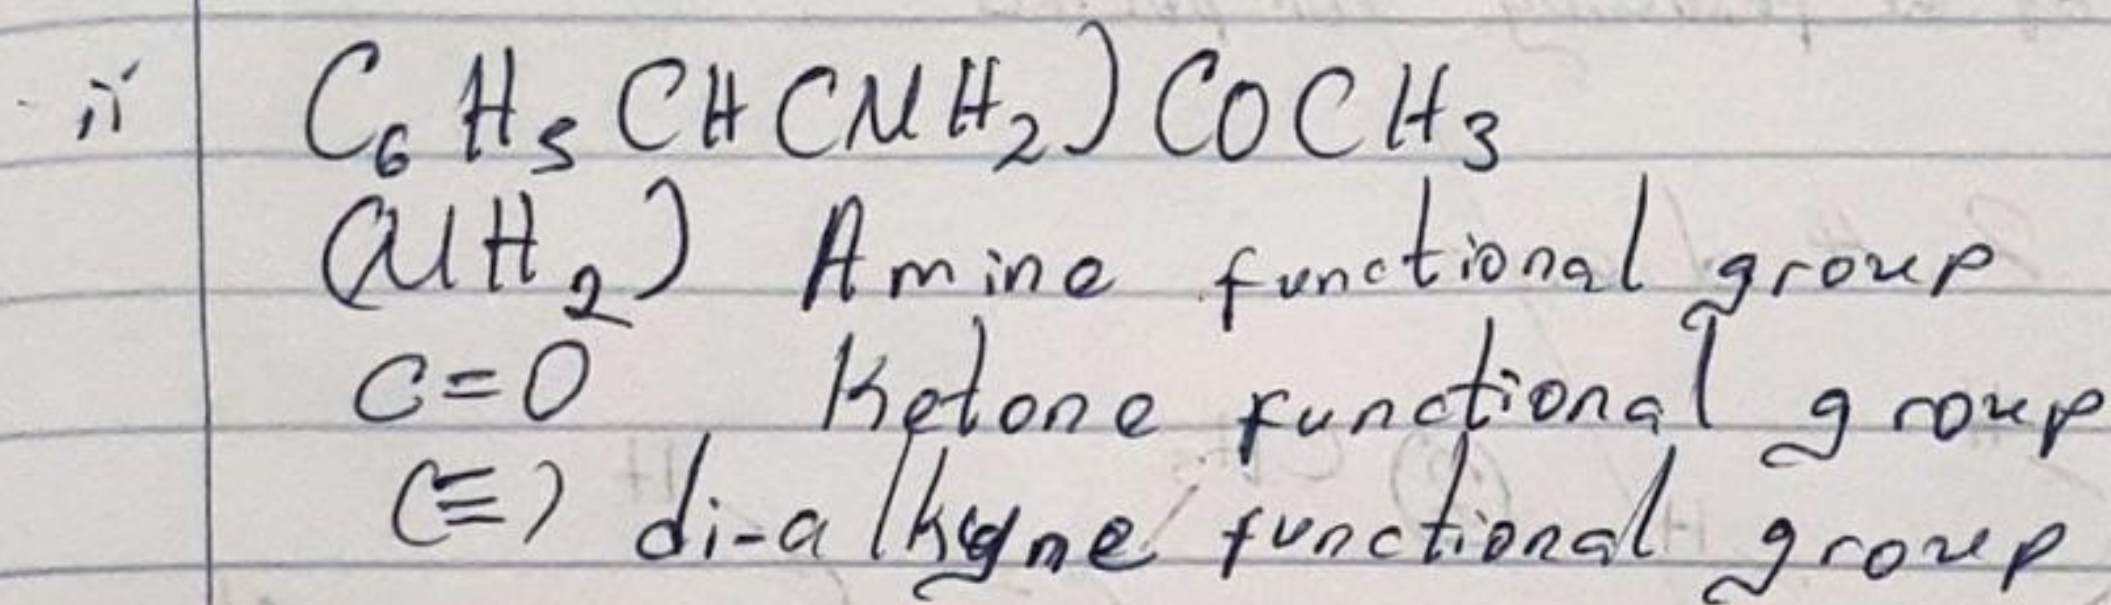 ii C₆H₅CHCNH₂)COCH₃
(NH₂) Amine functional group
C=O Ketone functional group
(≡) di-alkyne functional group